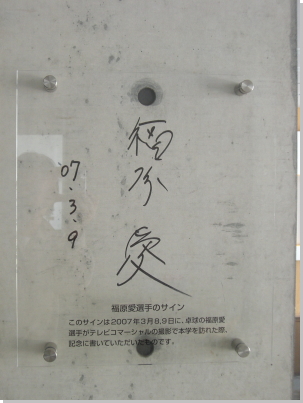 福原愛
'07.3.9
福原愛選手のサイン
このサインは2007年3月8,9日に、卓球の福原愛
選手がテレビコマーシャルの撮影で本学を訪れた際、
記念に書いていただいたものです。